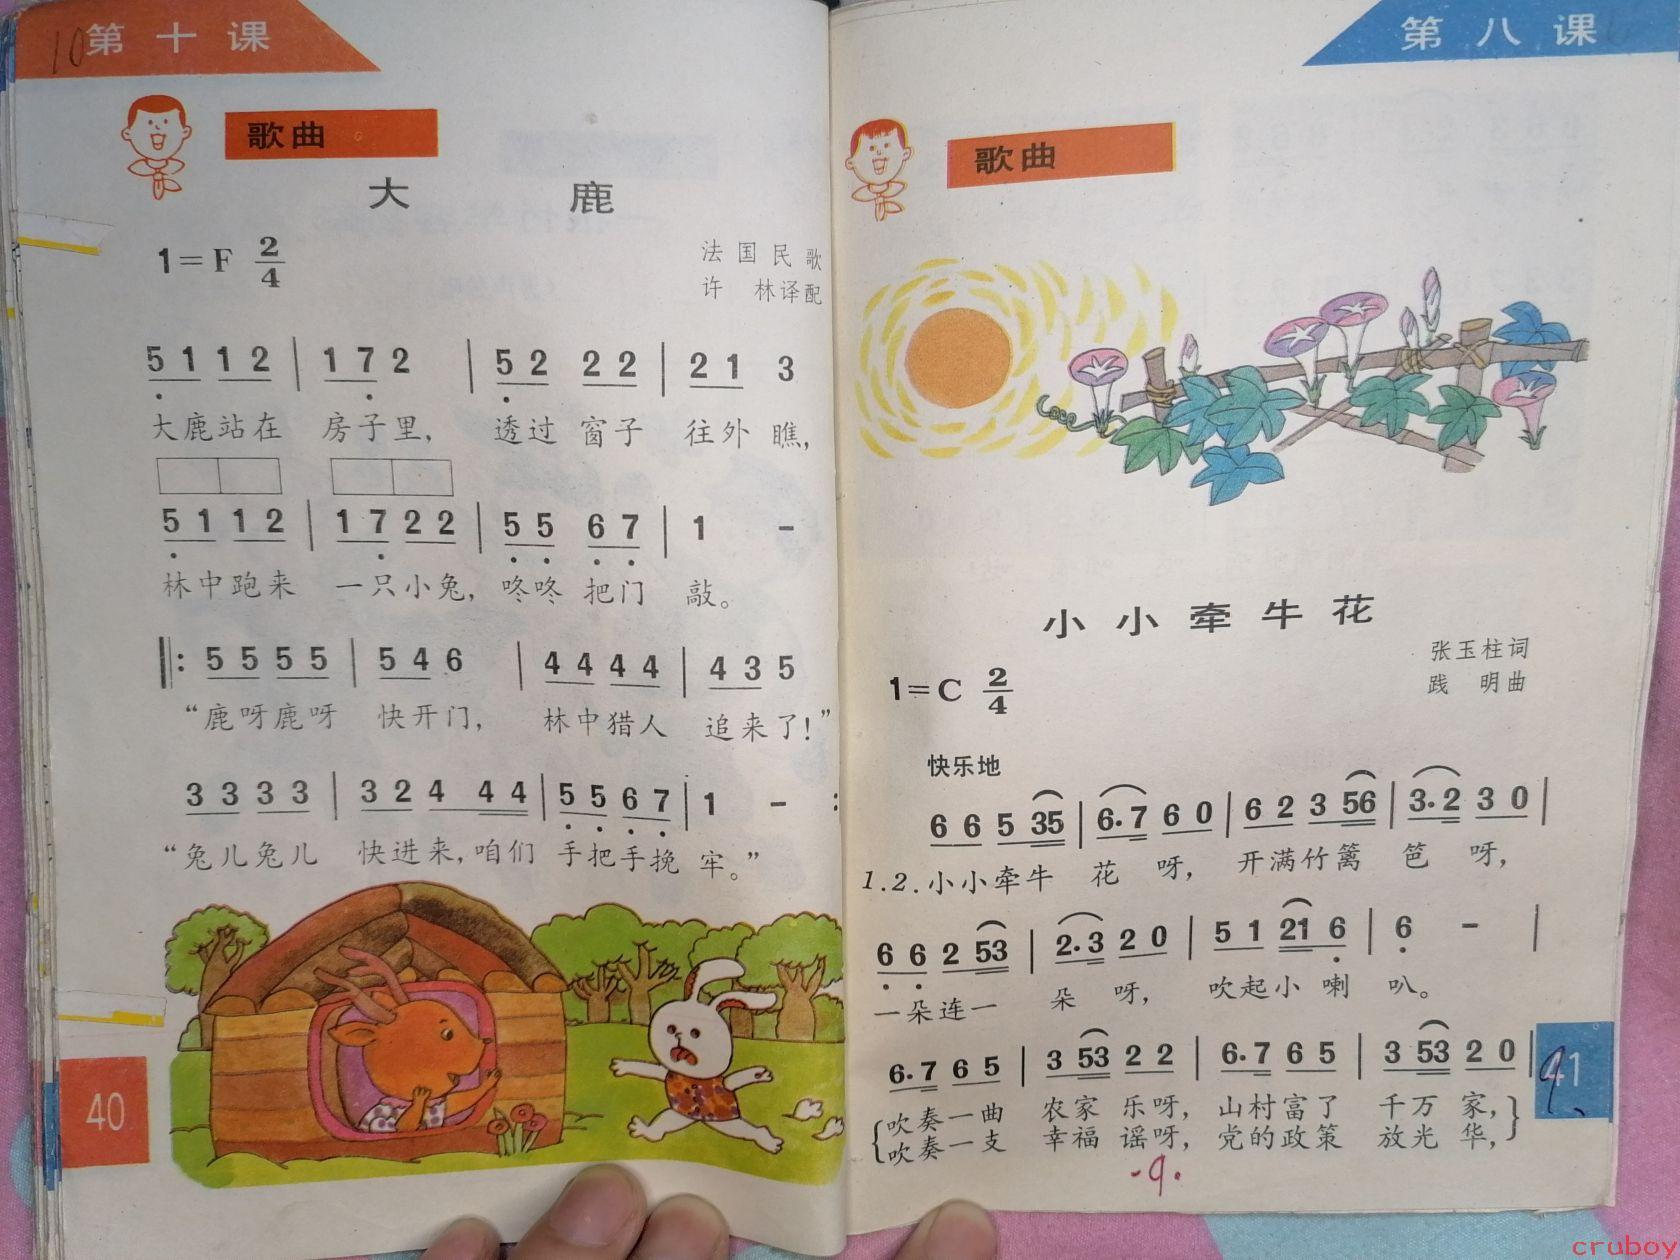 10 第十课
歌曲
大 鹿
1=F 2/4
法国民歌
许 林译配
5 1 1 2 | 1 7 2 | 5 2 2 2 | 2 1 3
大鹿站在 房子里, 透过窗子 往外瞧,
5 1 1 2 | 1 7 2 2 | 5 5 6 7 | 1 -
林中跑来 一只小兔, 咚咚把门 敲。
‖: 5 5 5 5 | 5 4 6 | 4 4 4 4 | 4 3 5
“鹿呀鹿呀 快开门, 林中猎人 追来了!”
3 3 3 3 | 3 2 4 4 4 | 5 5 6 7 | 1 - :
“兔儿兔儿 快进来,咱们 手把手挽 牢。”
40
第八课
歌曲
小小牵牛花
张玉柱词
践 明曲
1=C 2/4
快乐地
6 6 5 35 | 6. 7 6 0 | 6 2 3 56 | 3. 2 3 0 |
1.2.小小牵牛 花 呀, 开满竹篱 笆 呀,
6 6 2 53 | 2. 3 2 0 | 5 1 21 6 | 6 - |
一朵连一 朵 呀, 吹起小喇 叭。
6. 7 6 5 | 3 53 2 2 | 6. 7 6 5 | 3 53 2 0 |
吹奏一曲 农家 乐呀, 山村富了 千万 家,
吹奏一支 幸福 谣呀, 党的政策 放光 华,
41
9.
-9.
cruboy